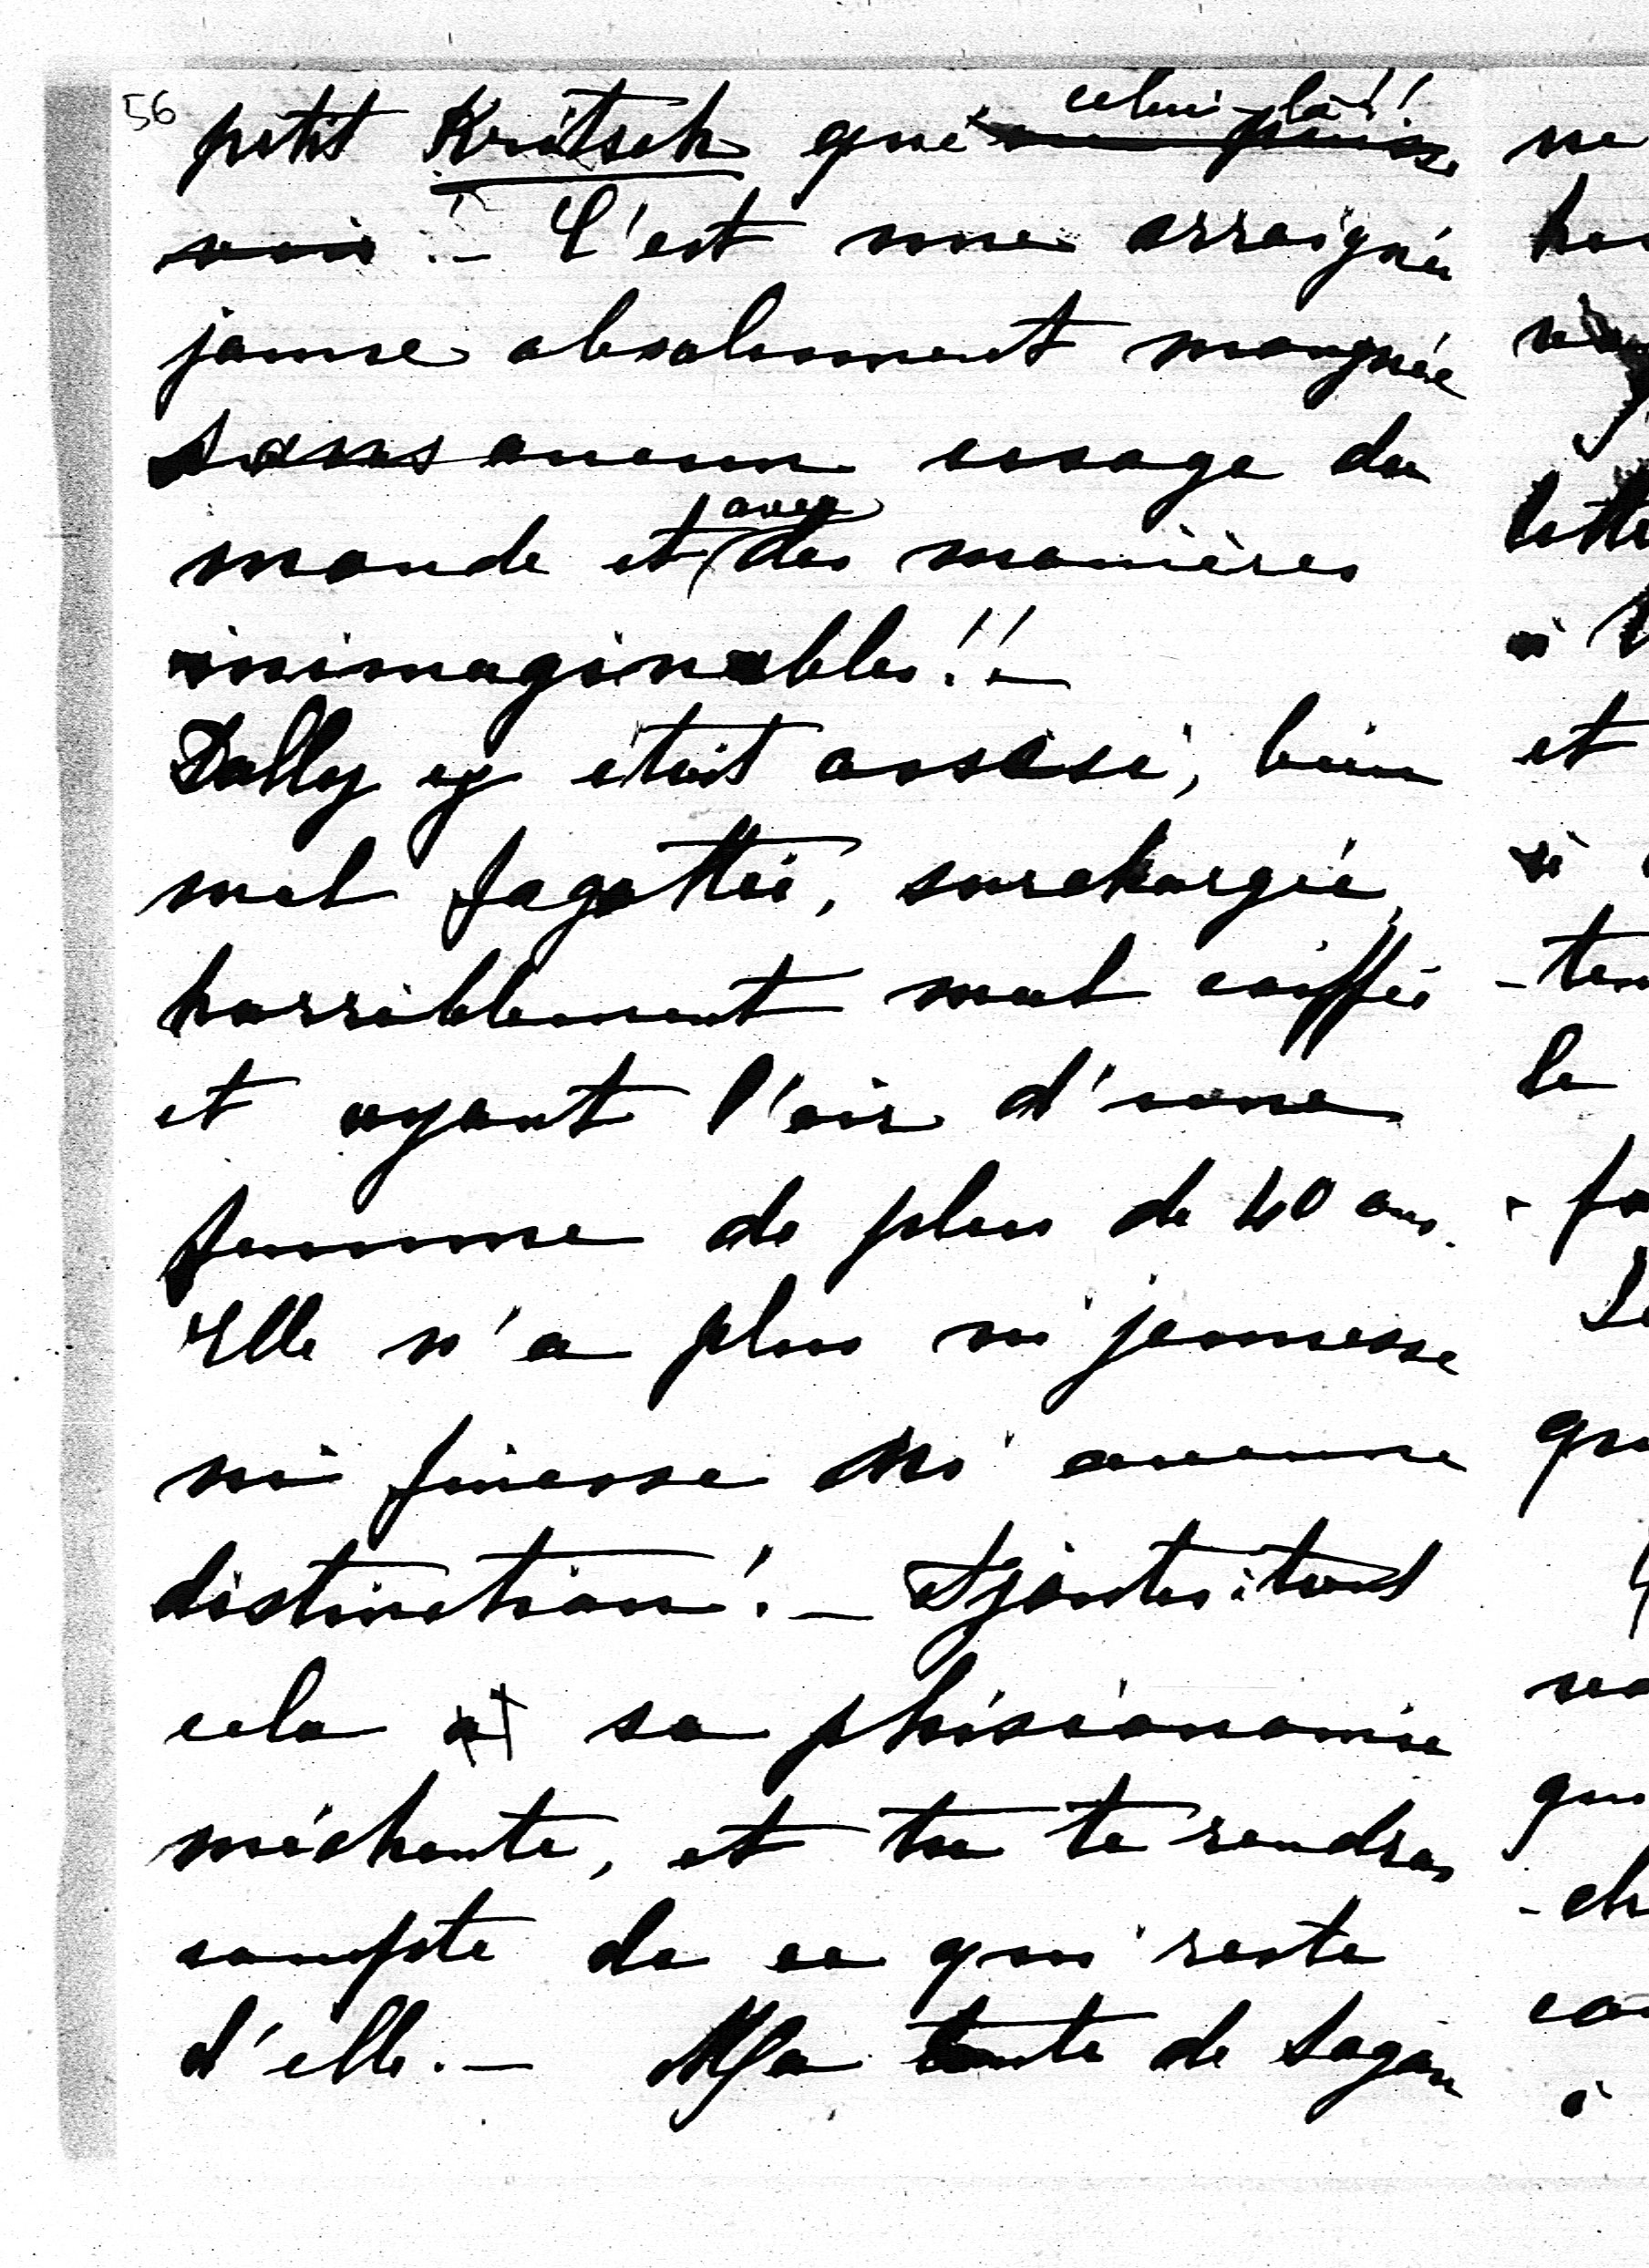 56
celui-là!!
petit Kritsch que ~~on puisse~~
~~voir~~.— C'est une arraignée
jaune absolument manquée
sans aucun usage du
avec
monde et des manières
inimaginables!!—
Dolly y était assise, bien
mal fagottée, surchargée,
horriblement mal coiffée
et ayant l'air d'une
femme de plus de 40 ans.
Elle n'a plus ni jeunesse
ni finesse ni aucune
distinction!— Ajoutes: tout
cela à sa phisionomie
méchante, et tu te rendras
compte de ce qui reste
d'elle.— Ma tante de Sagan
ne
et
le